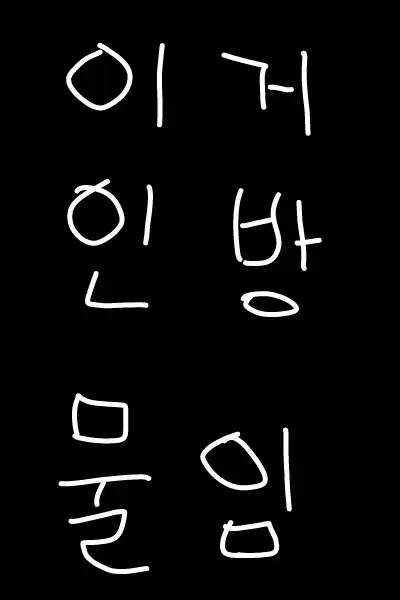 이거
인방
물임